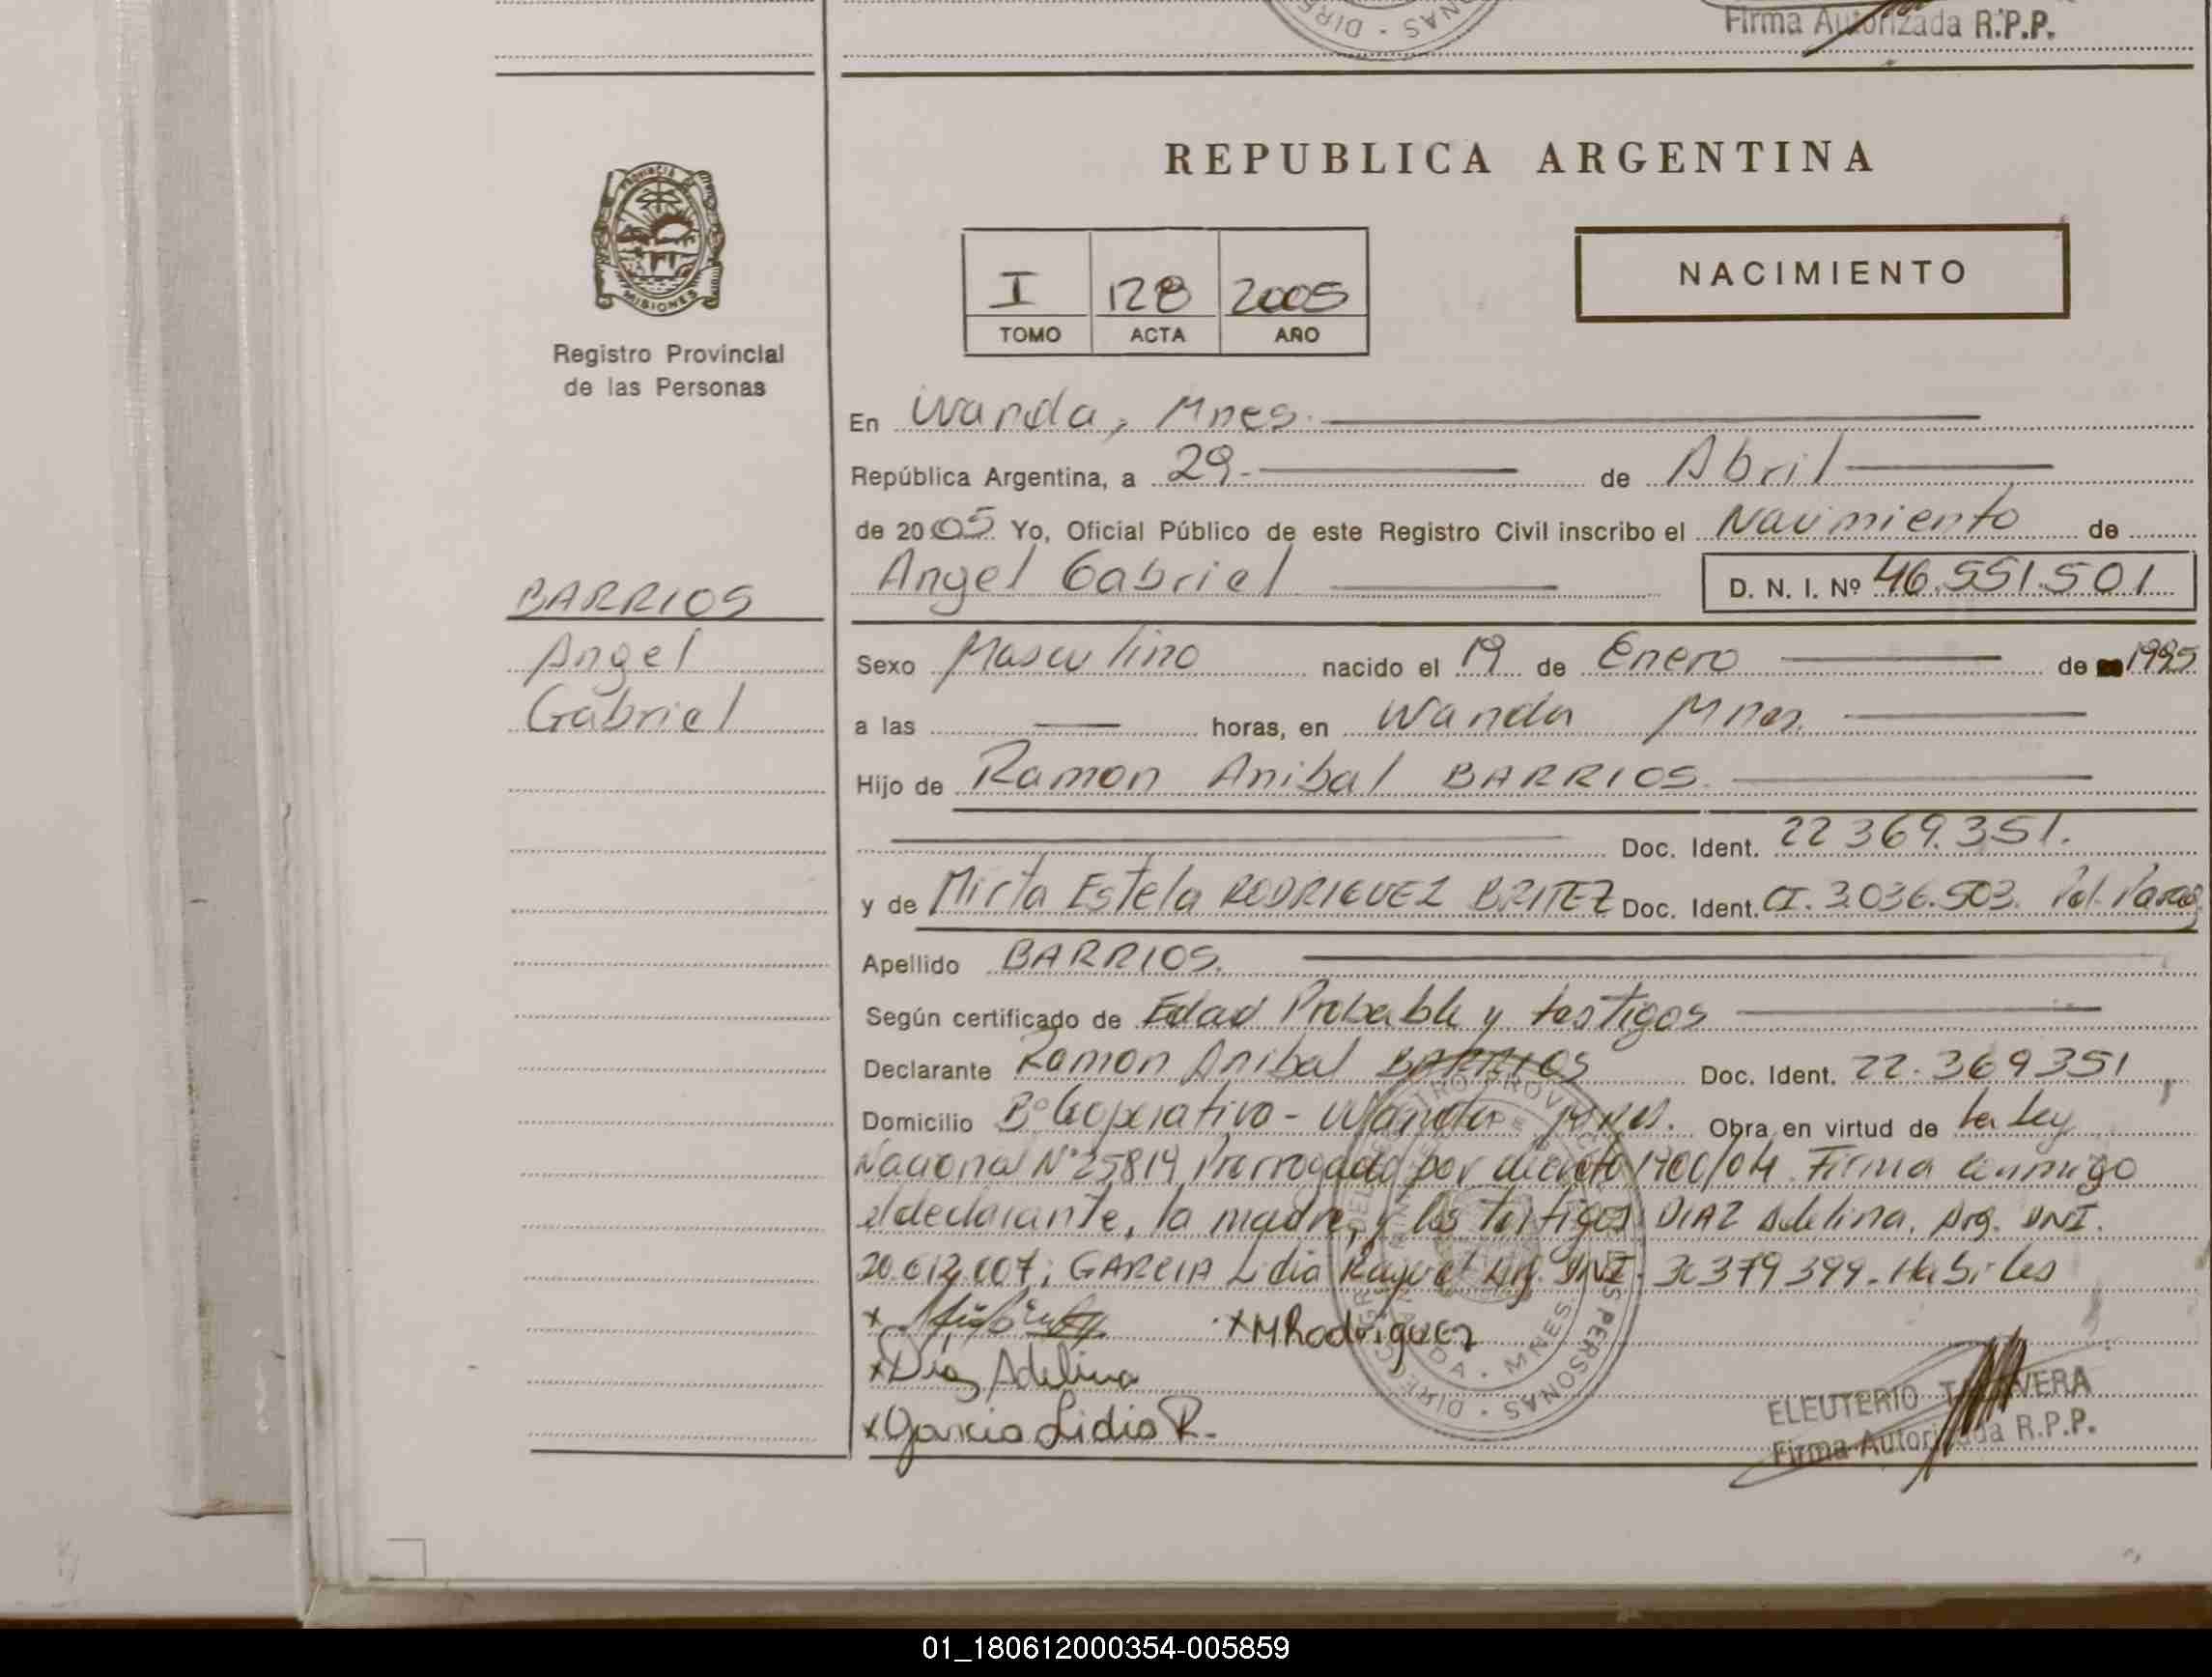 Firma Autorizada R.P.P.
REPUBLICA ARGENTINA
PROVINCIA DE
MISIONES
Registro Provincial
de las Personas
I 128 2005
TOMO ACTA AÑO
NACIMIENTO
En Wanda, Mnes.
República Argentina, a 29 de Abril
de 2005 Yo, Oficial Público de este Registro Civil inscribo el Nacimiento de
Angel Gabriel D. N. I. Nº 46.551.501
BARRIOS
Angel
Gabriel
Sexo Masculino nacido el 19 de Enero de 1995
a las horas, en Wanda Mnes.
Hijo de Ramon Anibal BARRIOS.
Doc. Ident. 22 369.351.
y de Mirta Estela RODRIGUEZ BRITEZ Doc. Ident. CI. 3.036.503. Pol. Parag
Apellido BARRIOS.
Según certificado de Edad Probable y testigos
Declarante Ramon Anibal BARRIOS Doc. Ident. 22.369351
Domicilio Bº Cooperativa - Wanda Mnes. Obra en virtud de la Ley
Nacional Nº 25819 Prorrogada por decreto 1700/04. Firma conmigo
el declarante, la madre, y los testigos DIAZ Adelina. Arg. DNI.
20.612.007; GARCIA Lidia Raquel Arg. DNI. 30379399. Habiles
x x MRodriguez
x Diaz Adelina
x Garcia Lidia R.
ELEUTERIO TALAVERA
Firma Autorizada R.P.P.
01_180612000354-005859